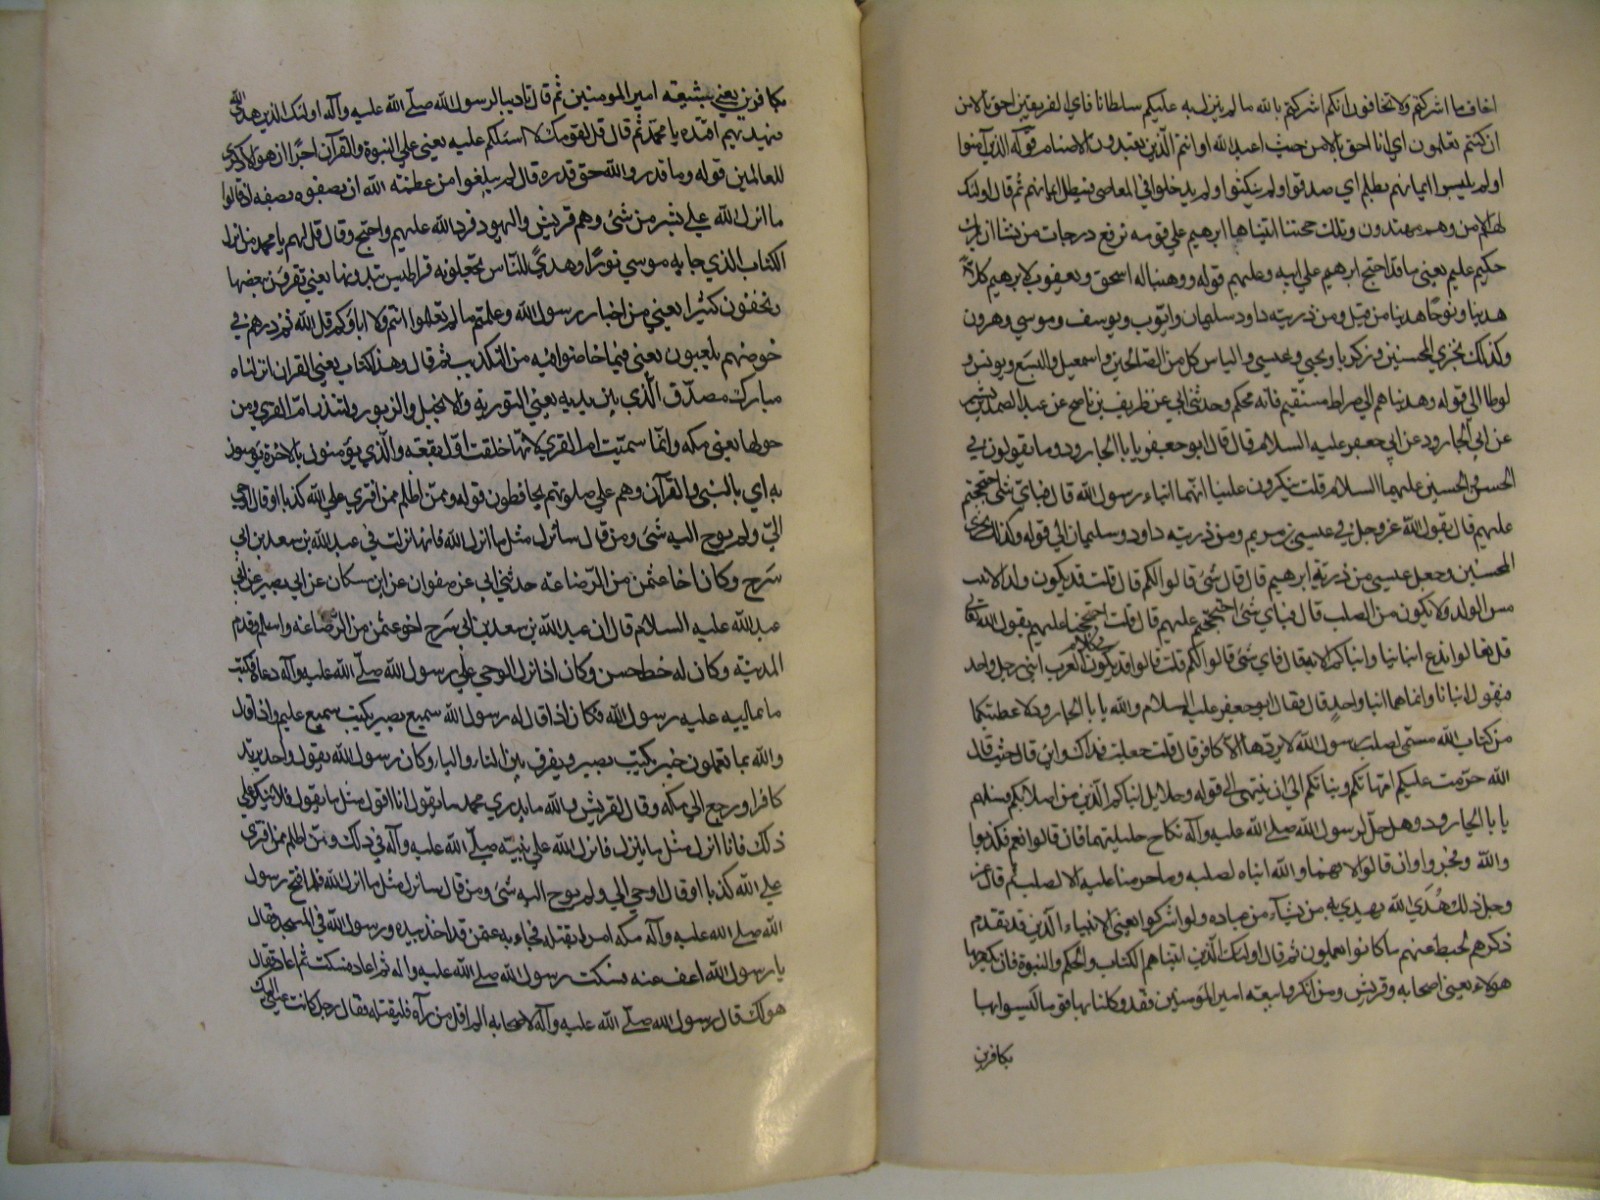 اخاف ما اشركتم ولا تخافون انكم اشركتم بالله ما لم ينزل به عليكم سلطانا فاي الفريقين احق بالامن
ان كنتم تعلمون اي انا احق بالامن حيث اعبد الله او انتم الذين يعبدون الاصنام قوله الذين آمنوا
اولم يلبسوا ايمانهم بظلم اي صدقوا ولم ينكثوا ولم يدخلوا في المعاصي فيبطل ايمانهم ثم قال اولئك
لهم الامن وهم مهتدون وتلك حجتنا آتيناها ابرهيم علي قومه نرفع درجات من نشا ان ربك
حكيم عليم يعني ما قد احتج ابرهيم علي ابيه وعليهم قوله ووهبنا له اسحق ويعقوب لابرهيم كلا
هدينا ونوحا هدينا من قبل ومن ذريته داود سليمان وايوب ويوسف وموسي وهرون
وكذلك نجزي المحسنين وزكريا ويحيي وعيسي والياس كل من الصالحين واسمعيل واليسع ويونس و
لوطا الي قوله وهديناهم الي صراط مستقيم فانه محكم وحدثني ابي عن ظريف بن ناصح عن عبد الصمد بن بشير
عن ابي الجارود عن ابي جعفر عليه السلام قال قال ابو جعفر يا با الجارود وما يقولون في
الحسن والحسين عليهما السلام قلت ينكرون علينا انهما ابناء رسول الله قال فباي شئ احتججتم
عليهم قال بقول الله عز وجل في عيسي بن مريم ومن ذريته داود وسليمان الي قوله وكذلك نجزي
المحسنين وجعل عيسي من ذرية ابرهيم قال قال شئ قالوا لكم قال قلت قد يكون ولد الابنه
من الولد ولا يكون من الصلب قال فباي شئ احتججتم عليهم قال قلت احتججنا عليهم بقول الله تعالي
قل تعالوا ندع ابنائنا وابناكم الاية قال فاي شئ قالوا لكم قلت قالوا قد يكون في كلام العرب ابني رجل واحد
فيقول ابنانا وانما هما ابنا واحد قال فقال ابو جعفر عليه السلام والله يا با الجارود لاعطينكها
من كتاب الله مسمي لصلب رسول الله لا يردها الا كافر قال قلت جعلت فداك واين قال حيث قال
الله حرمت عليكم امهاتكم وبناتكم الي ان ينتهي الي قوله وحلايل ابناكم الذين من اصلابكم فسلهم
يا با الجارود وهل حل لرسول الله صلي الله عليه وآله نكاح حليلتهما فان قالوا نعم فكذبوا
والله وفجروا وان قالوا لا فهما والله ابناه لصلبه وما حرمنا عليه الا لصلب ثم قال عز
وجل ذلك هدي الله يهدي به من يشاء من عباده ولو اشركوا يعني الانبياء الذين قد تقدم
ذكرهم لحبط عنهم ما كانوا يعملون ثم قال اولئك الذين اتيناهم الكتاب والحكم والنبوة فان يكفر بها
هولاء يعني اصحابه وقريش ومن انكر بيعة امير المومنين فقد وكلنا بها قوما ليسوا بها
بكافرين
بكافرين يعني شيعة امير المومنين ثم قال تاديبا لرسول الله صلي الله عليه وآله اولئك الذين هدي الله
فبهديهم اقتده يا محمد ثم قال قل لقومك لا اسئلكم عليه يعني علي النبوة والقرآن اجرا ان هو الا ذكري
للعالمين قوله وما قدروا الله حق قدره قال لم يبلغوا من عظمته الله ان يصفوه بصفه اذ قالوا
ما انزل الله علي بشر من شئ وهم قريش واليهود فرد الله عليهم واحتج وقال قل لهم يا محمد من انزل
الكتاب الذي جا به موسي نورا وهدي للناس تجعلونه قراطيس تبدونها يعني تقرؤن بعضها
وتخفون كثيرا يعني من اخبار رسول الله وعلمتم ما لم تعلموا انتم ولا اباؤكم قل الله ثم ذرهم في
خوضهم يلعبون يعني فيما خاضوا فيه من التكذيب ثم قال وهذا كتاب يعني القران انزلناه
مبارك مصدق الذي بين يديه يعني التورية والانجيل والزبور ولتنذر ام القري ومن
حولها يعني مكه وانما سميت ام القري لانها خلقت اول بقعه والذي يؤمنون بالاخرة يؤمنون
به اي بالنبي والقرآن وهم علي صلوتهم يحافظون قوله ومن اظلم ممن افتري علي الله كذبا او قال اوحي
الي ولم يوح اليه شئ ومن قال سانزل مثل ما انزل الله فانها نزلت في عبد الله بن سعد بن ابي
سرح وكان اخا عثمن من الرضاعه حدثني ابي عن صفوان عن ابن مسكان عن ابي بصير عن ابي
عبد الله عليه السلام قال ان عبد الله بن سعد بن ابي سرح اخو عثمن من الرضاعه واسلم وقدم
المدينه وكان له خط حسن وكان اذا نزل الوحي علي رسول الله صلي الله عليه وآله دعاه فكتب
ما يمليه عليه رسول الله فكان اذا قال له رسول الله سميع بصير يكتب سميع عليم واذا قال
والله بما تعملون خبير يكتب بصير ويفرق بين التاء والياء وكان رسول الله يقول واحد يرتد
كافرا ورجع الي مكه وقال لقريش والله ما يدري محمد ما يقول انا اقول مثل ما يقول فلا ينكر علي
ذلك فانا انزل مثل ما ينزل فانزل الله علي نبيه صلي الله عليه وآله في ذلك ومن اظلم ممن افتري
علي الله كذبا او قال اوحي الي ولم يوح اليه شئ ومن قال سانزل مثل ما انزل الله فلما فتح رسول
الله صلي الله عليه وآله مكه امر بقتله فجاء به عثمن قد اخذ بيده ورسول الله في المسجد فقال
يا رسول الله اعف عنه فسكت رسول الله صلي الله عليه واله ثم اعاد فسكت ثم اعاد فقال
هو لك قال رسول الله صلي الله عليه وآله لاصحابه الم اقل من رآه فليقتله فقال رجل كانت عيني اليك